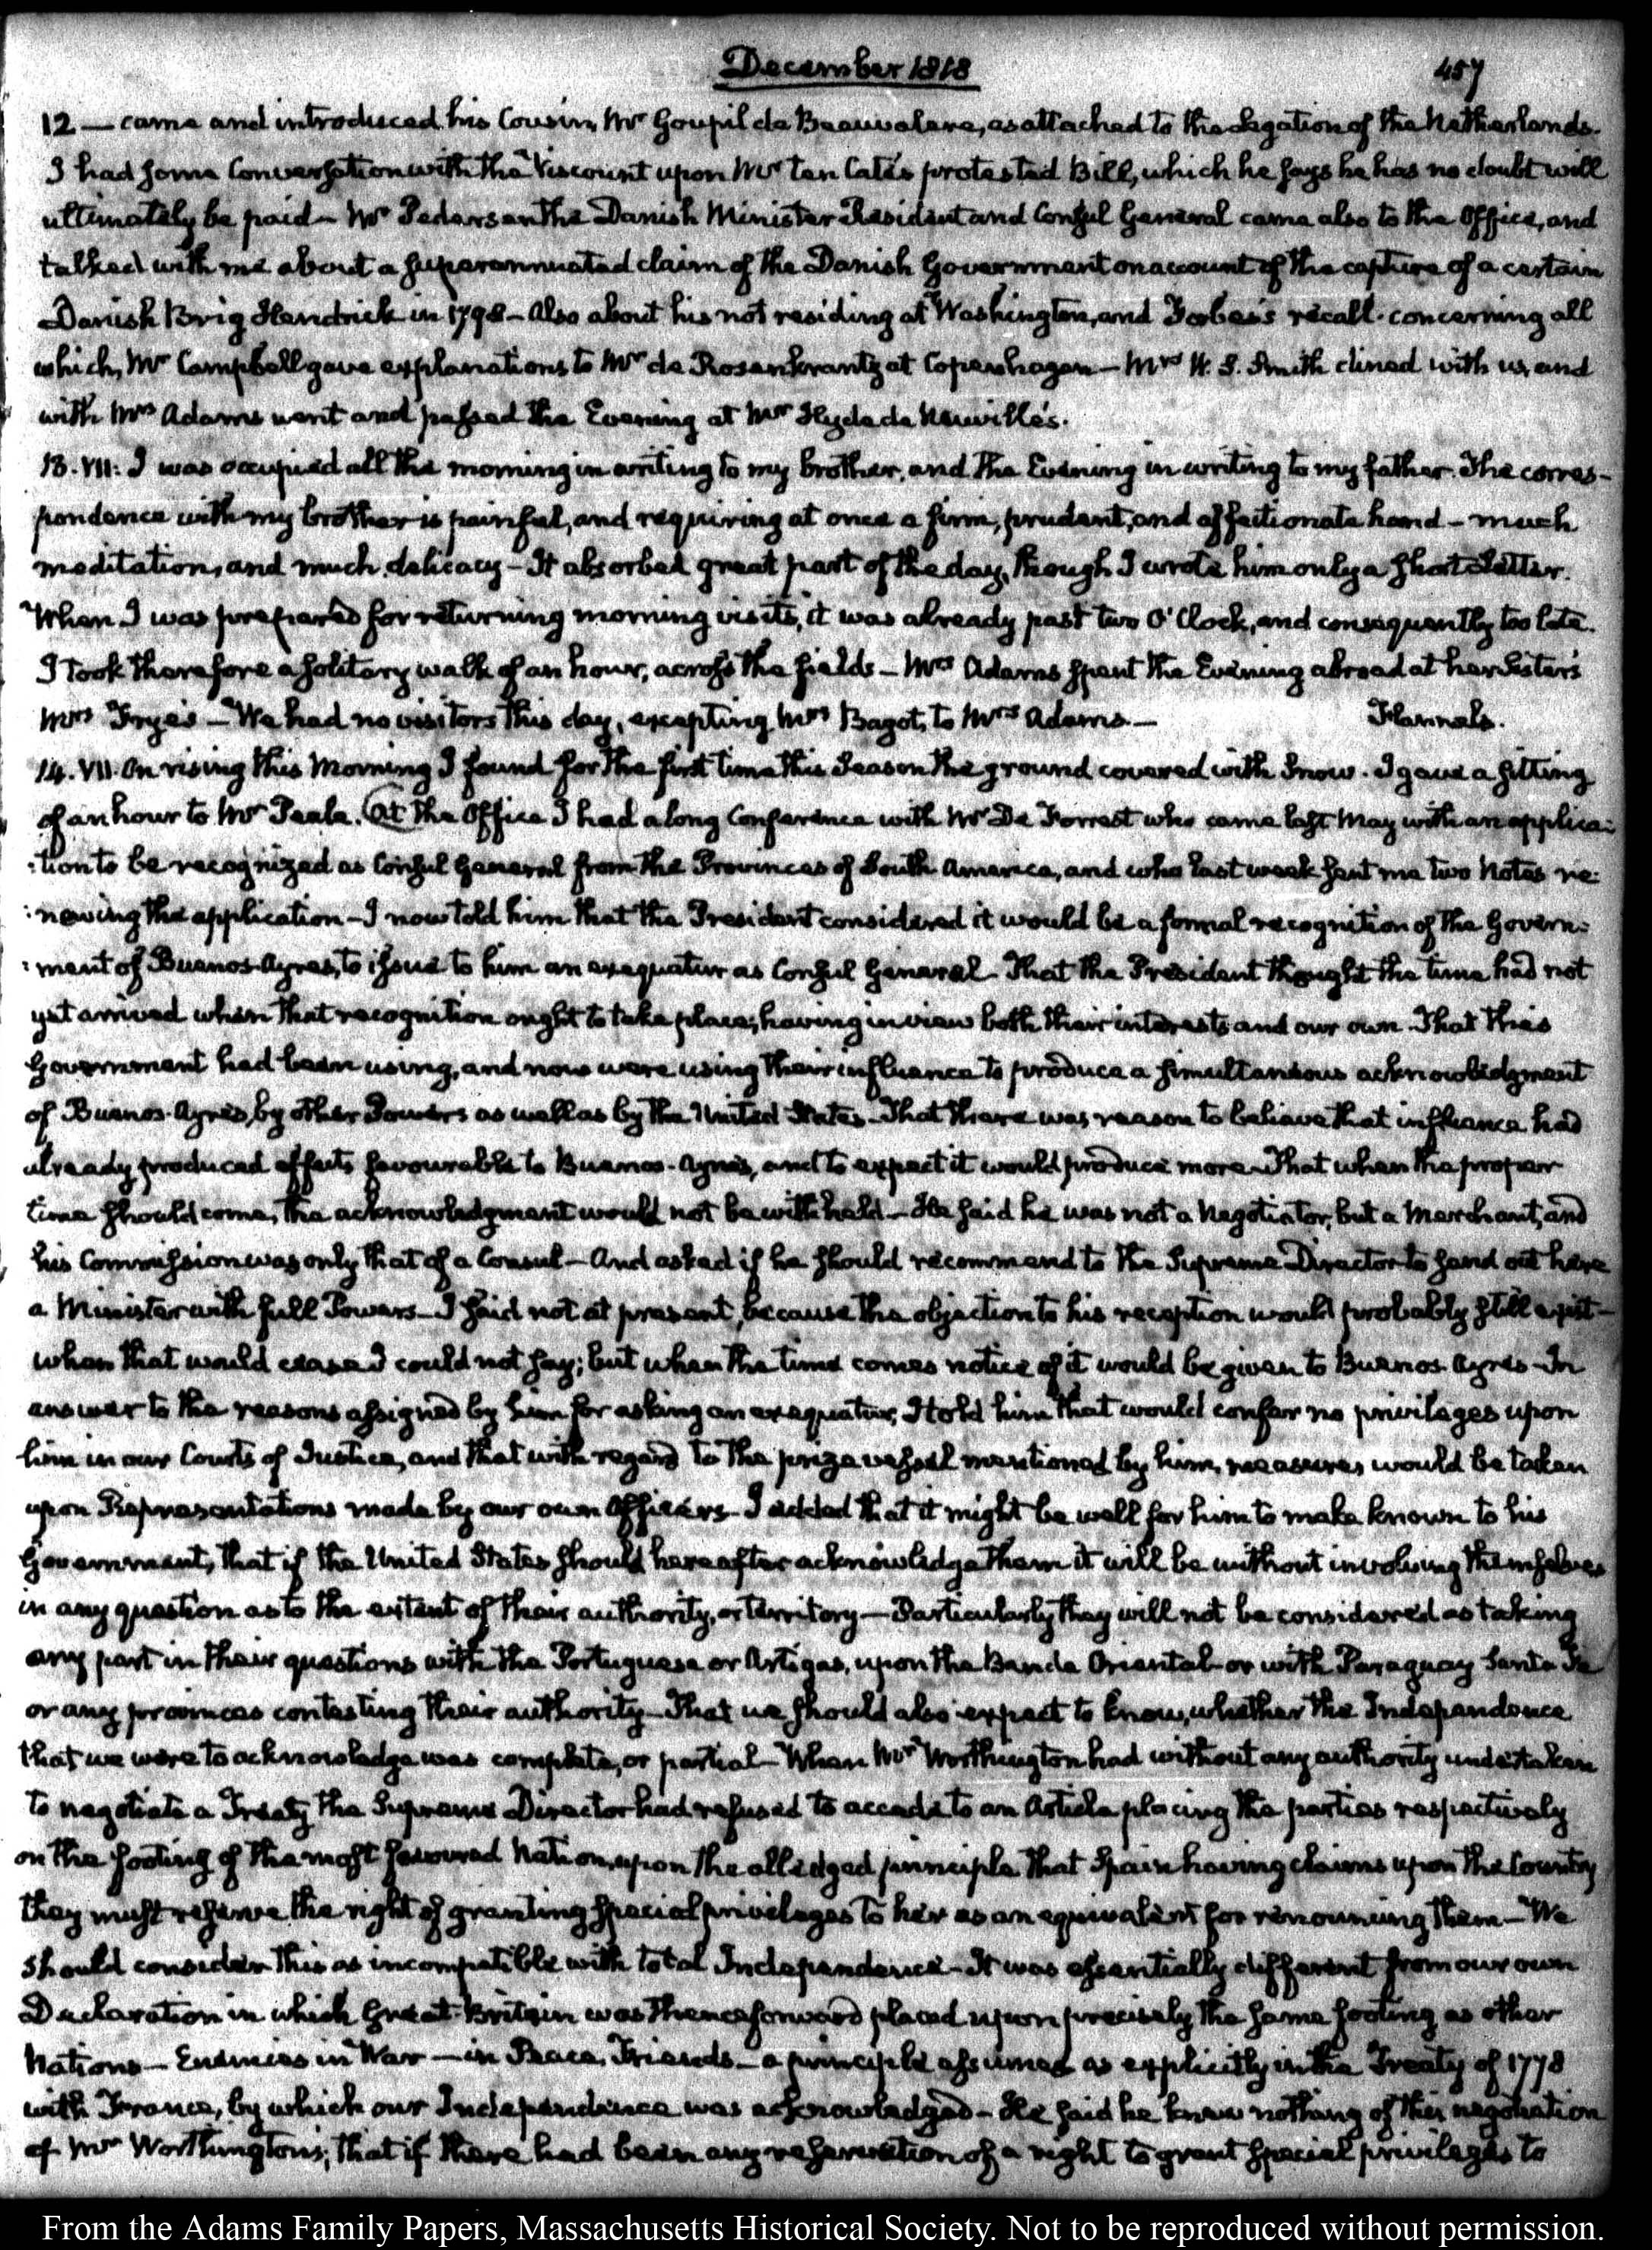 December 1818
457
12 — came and introduced his Cousin, Mr Goupil de Beauvalere, as attached to the Legation of the Netherlands.
I had some Conversation with the Viscount upon Mr Ten Cate's protested Bill, which he says he has no doubt will
ultimately be paid — Mr Pedersen the Danish Minister Resident and Consul General came also to the Office, and
talked with me about a superannuated claim of the Danish Government on account of the capture of a certain
Danish Brig Hendrick in 1798 — Also about his not residing at Washington, and Forbes's recall. concerning all
which, Mr Campbell gave explanations to Mr de Rosenkrantz at Copenhagen — Mrs W. S. Smith dined with us, and
with Mrs Adams went and passed the Evening at Mr Hyde de Neuville's.
13. VII: I was occupied all the morning in writing to my brother, and the Evening in writing to my father. The corres-
pondence with my brother is painful, and requiring at once a firm, prudent, and affectionate hand — much
meditation, and much delicacy — It absorbed great part of the day, though I wrote him only a short Letter.
When I was prepared for returning morning visits, it was already past two O'Clock, and consequently too late.
I took therefore a solitary walk of an hour, across the fields — Mrs Adams spent the Evening abroad at her Sister's
Mrs Frye's — We had no visitors this day, excepting Mrs Bagot, to Mrs Adams. — Flannels.
14. VII. On rising this Morning I found for the first time this Season the ground covered with Snow. I gave a sitting
of an hour to Mr Peale. At the Office I had a long Conference with Mr De Forrest who came last May with an applica:
:tion to be recognized as Consul General from the Provinces of South America, and who last week sent me two Notes re:
:newing the application — I now told him that the President considered it would be a formal recognition of the Govern:
:ment of Buenos-Ayres, to issue to him an exequatur as Consul General — That the President thought the time had not
yet arrived when that recognition ought to take place, having in view both their interests and our own. That this
Government had been using, and now were using their influence to produce a simultaneous acknowledgment
of Buenos-Ayres, by other Powers as well as by the United States — That there was reason to believe that influence had
already produced effects favourable to Buenos-Ayres, and to expect it would produce more — That when the proper
time should come, the acknowledgment would not be withheld — He said he was not a Negotiator, but a Merchant, and
his Commission was only that of a Consul — And asked if he should recommend to the Supreme Director to send out here
a Minister with full Powers — I said not at present, because the objection to his reception would probably still exist —
when that would cease I could not say; but when the time comes notice of it would be given to Buenos-Ayres — In
answer to the reasons assigned by him for asking an exequatur, I told him that would confer no privileges upon
him in our Courts of Justice, and that with regard to the prize vessel mentioned by him, measures would be taken
upon Representations made by our own Officers — I added that it might be well for him to make known to his
Government, that if the United States should hereafter acknowledge them it will be without involving themselves
in any question as to the extent of their authority, or territory — Particularly they will not be considered as taking
any part in their questions with the Portuguese or Artigas, upon the Banda Oriental or with Paraguay Santa Fe
or any provinces contesting their authority — That we should also expect to know, whether the Independence
that we were to acknowledge was complete, or partial — When Mr Worthington had without any authority undertaken
to negotiate a Treaty the Supreme Director had refused to accede to an Article placing the parties respectively
on the footing of the most favoured Nation, upon the alledged principle that Spain having claims upon the Country
they must reserve the right of granting special privileges to her as an equivalent for renouncing them — We
should consider this as incompatible with total Independence — It was essentially different from our own
Declaration in which Great-Britain was thenceforward placed upon precisely the same footing as other
Nations — Enemies in War — in Peace, Friends — a principle assumed as explicitly in the Treaty of 1778
with France, by which our Independence was acknowledged — He said he knew nothing of this negotiation
of Mr Worthington's; that if there had been any reservation of a right to grant special privileges to
From the Adams Family Papers, Massachusetts Historical Society. Not to be reproduced without permission.